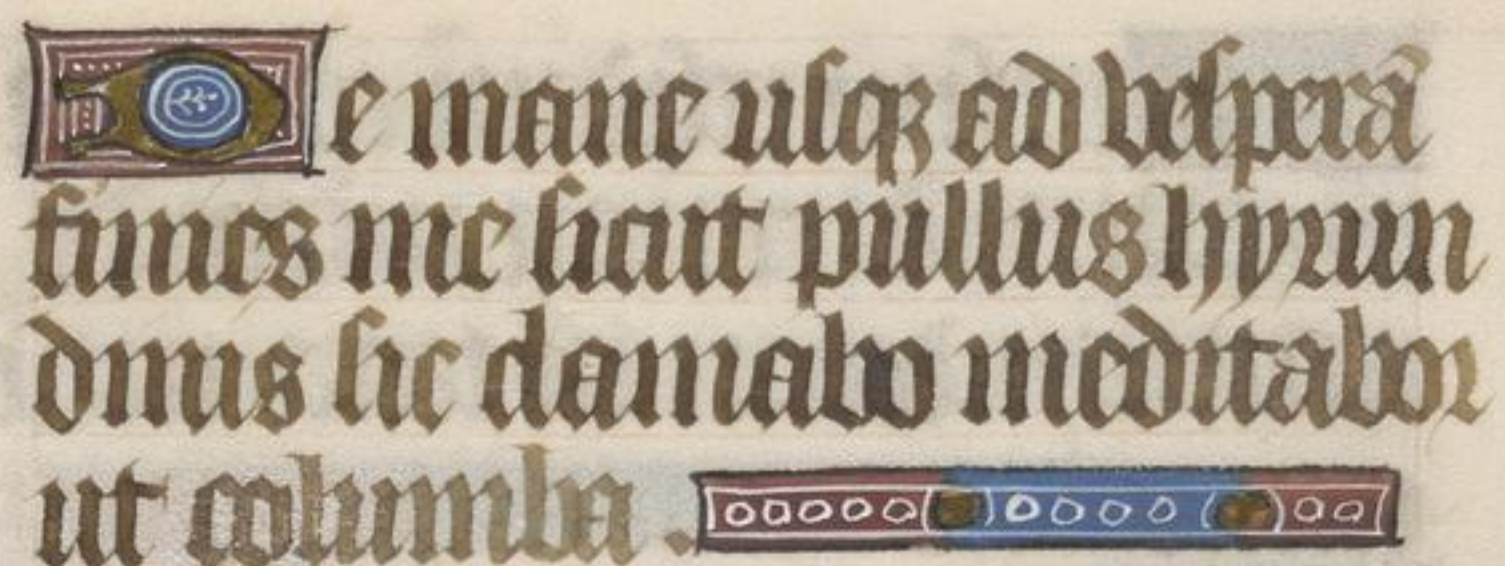 De mane uſqꝫ ad veſperā
finies me ſicut pullus hyrun
dinis ſic clamabo meditabor
ut columba .